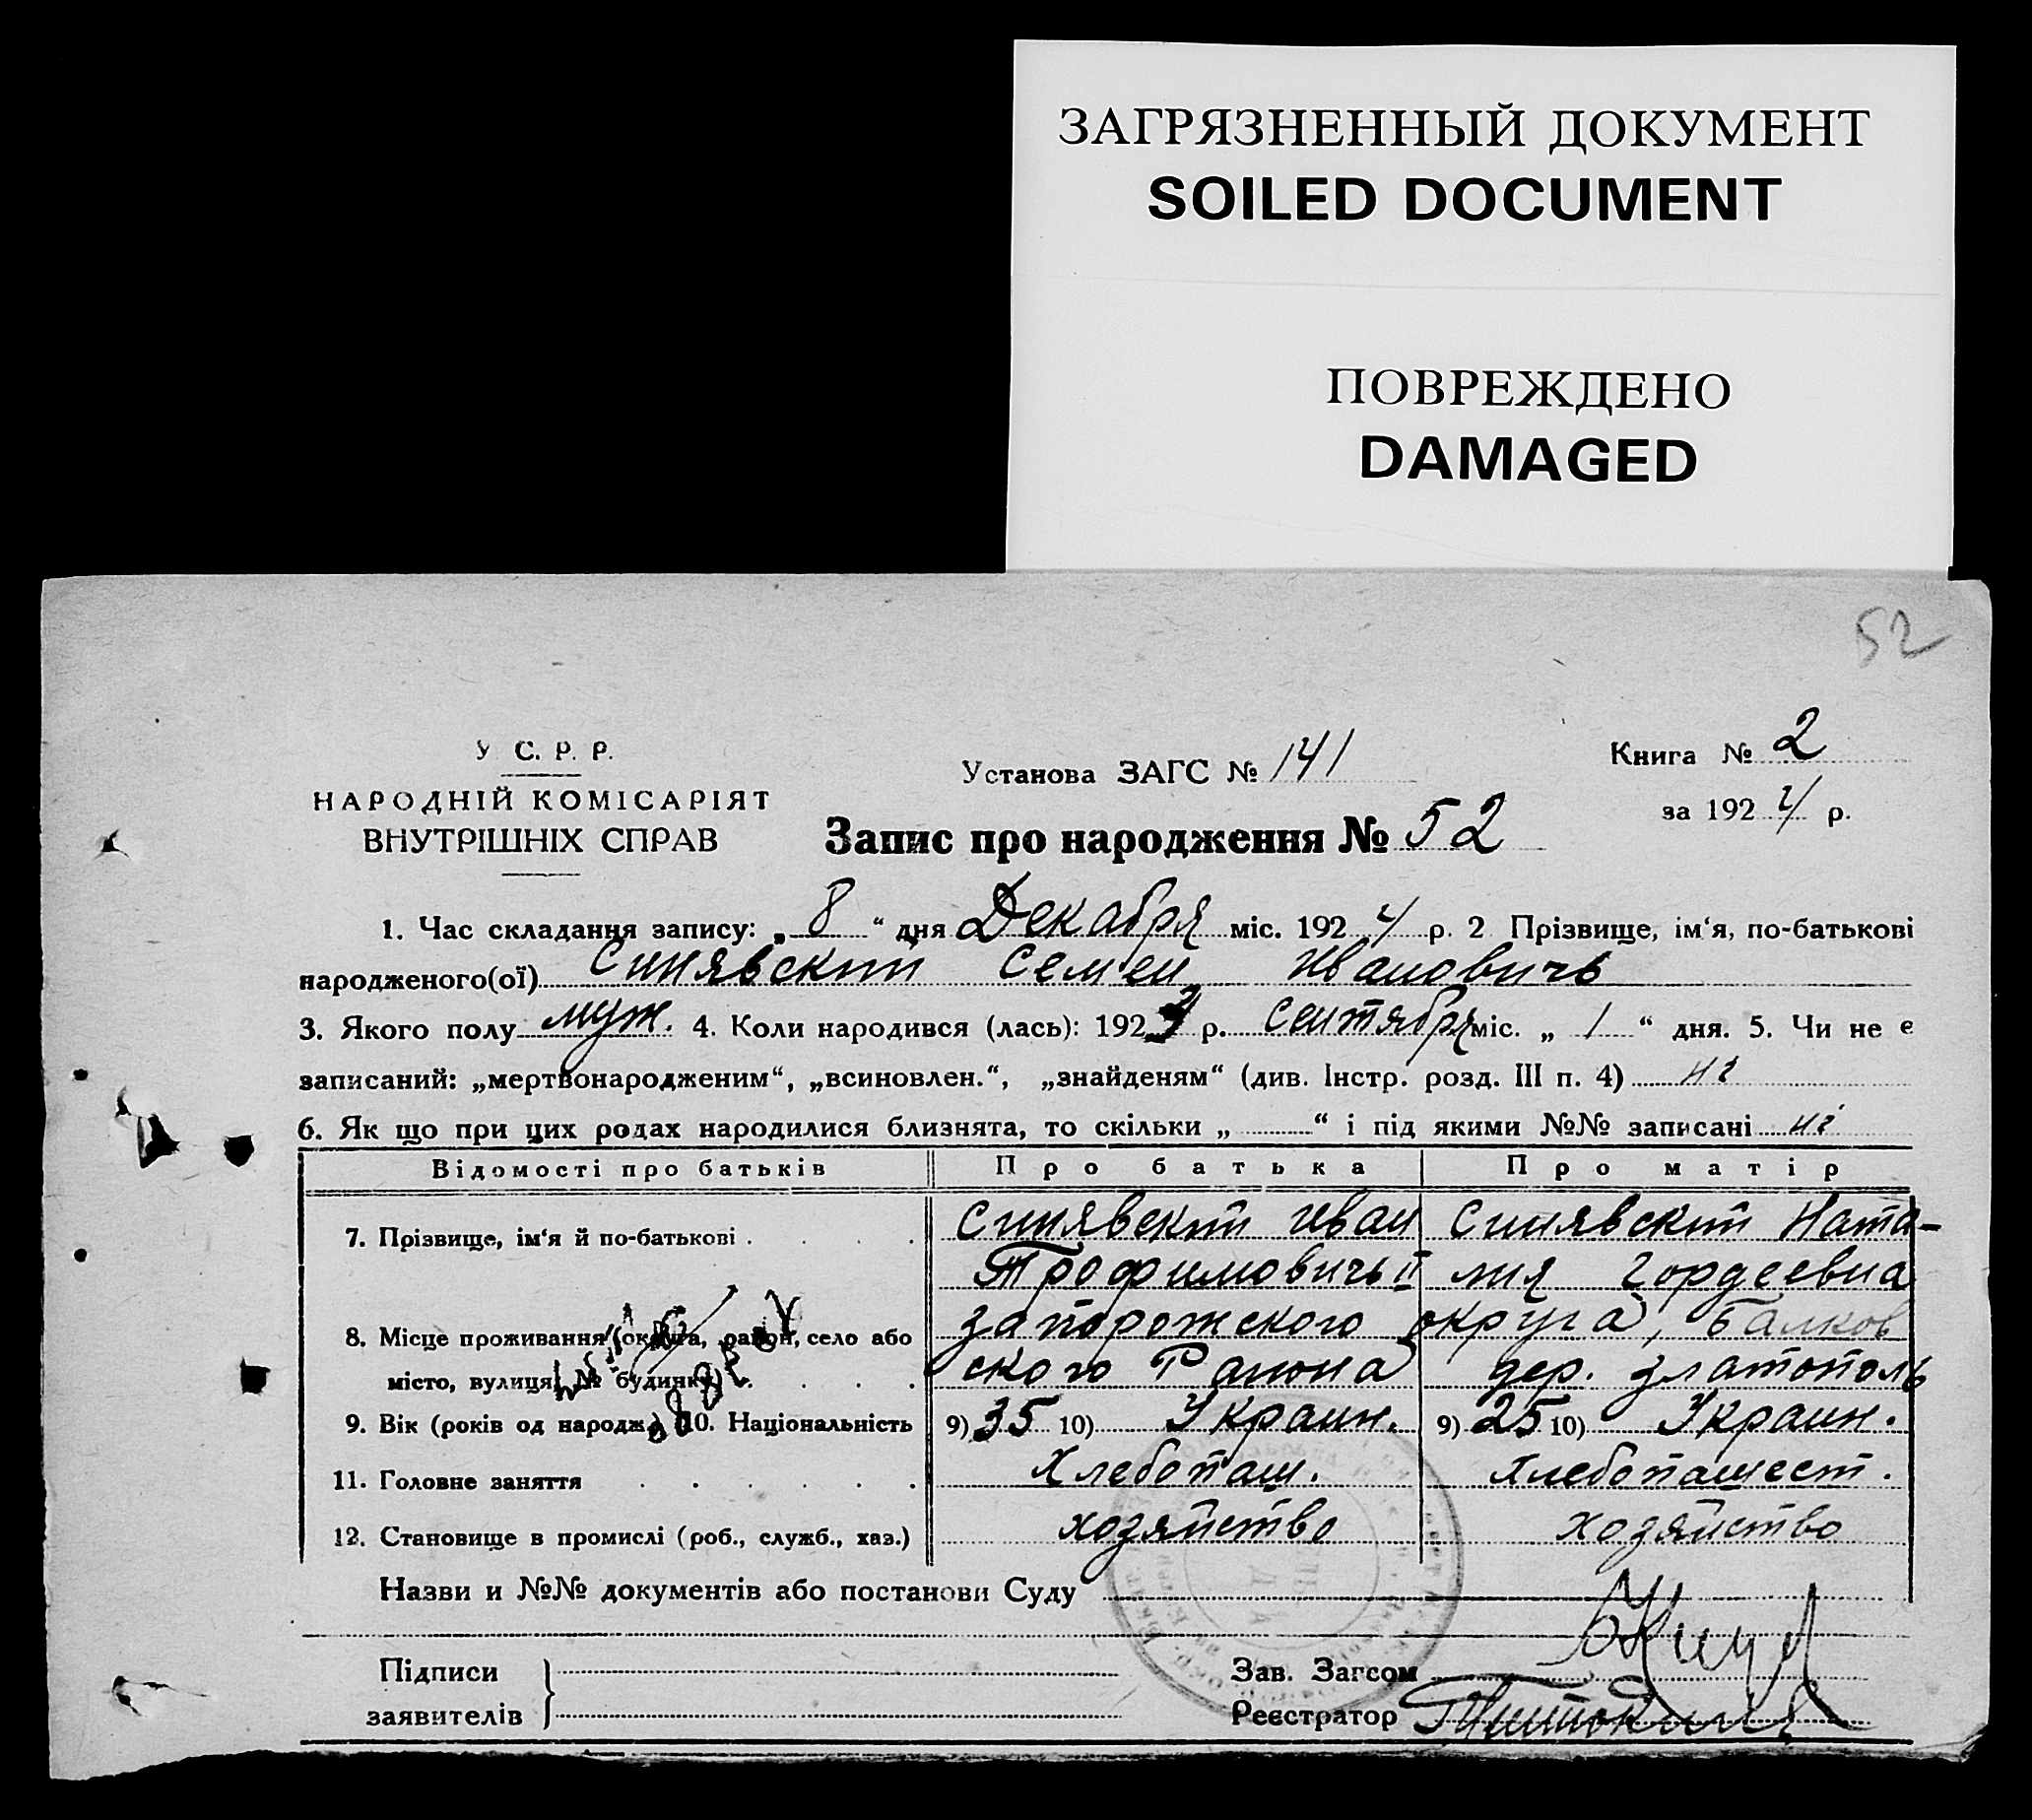 ЗАГРЯЗНЕННЫЙ ДОКУМЕНТ
SOILED DOCUMENT
ПОВРЕЖДЕНО
DAMAGED
52
У С. Р. Р.
НАРОДНІЙ КОМІСАРІЯТ
ВНУТРІШНІХ СПРАВ
Установа ЗАГС № 141
Книга № 2
за 1924 р.
Запис про народження № 52
1. Час складання запису: „ 8 “ дня Декабря міс. 1924 р. 2 Прізвище, ім‘я, по-батькові
народженого(ої) Синявский Семен Ивановичъ
3. Якого полу муж. 4. Коли народився (лась): 192 р. сентября міс. „ 1 “ дня. 5. Чи не є
записаний: „мертвонародженим“, „всиновлен.“, „знайденям“ (див. Інстр. розд. III п. 4) ні
6. Як що при цих родах народилися близнята, то скільки „ “ і під якими №№ записані ні
Відомості про батьків Про батька Про матір
7. Прізвище, ім‘я й по-батькові Синявский Иван Синявский Ната-
Трофимовичъ лия Гордеевна
8. Місце проживання (округа, район, село або запорожского округа, Балков
місто, вулиця, № будинку) ского Раиона дер. Златополь
9. Вік (років од народж.) 10. Національність 9) 35 10) Украин. 9) 25 10) Украин.
11. Головне заняття Хлебопаш. Хлебопашест.
12. Становище в промислі (роб., служб., хаз.) хозяйство хозяйство
Назви и №№ документів або постанови Суду
Підписи Зав. Загсом
заявителів Реєстратор